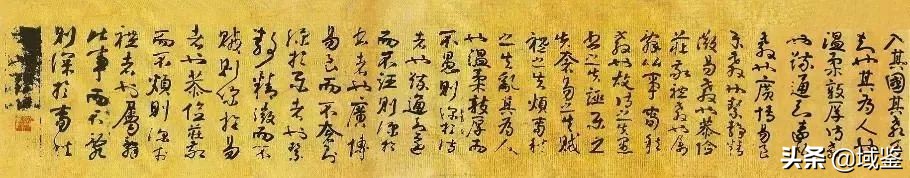 入其國其教可
知也其為人也
温柔敦厚詩教
也疏通知遠書
教也廣博易良
樂教也絜靜精
微易教也恭儉
莊敬禮教也屬
辭比事春秋
教也故詩之失愚
書之失誣樂之
失奢易之失賊
禮之失煩春秋
之失亂其為人
也温柔敦厚而
不愚則深於詩
者也疏通知遠
而不誣則深於
書者也廣博
易良而不奢則
深於樂者也絜
靜精微而不
賊則深於易
者也恭儉莊敬
而不煩則深於
禮者也屬辭
比事而不亂
則深於春秋
头条 @域鉴